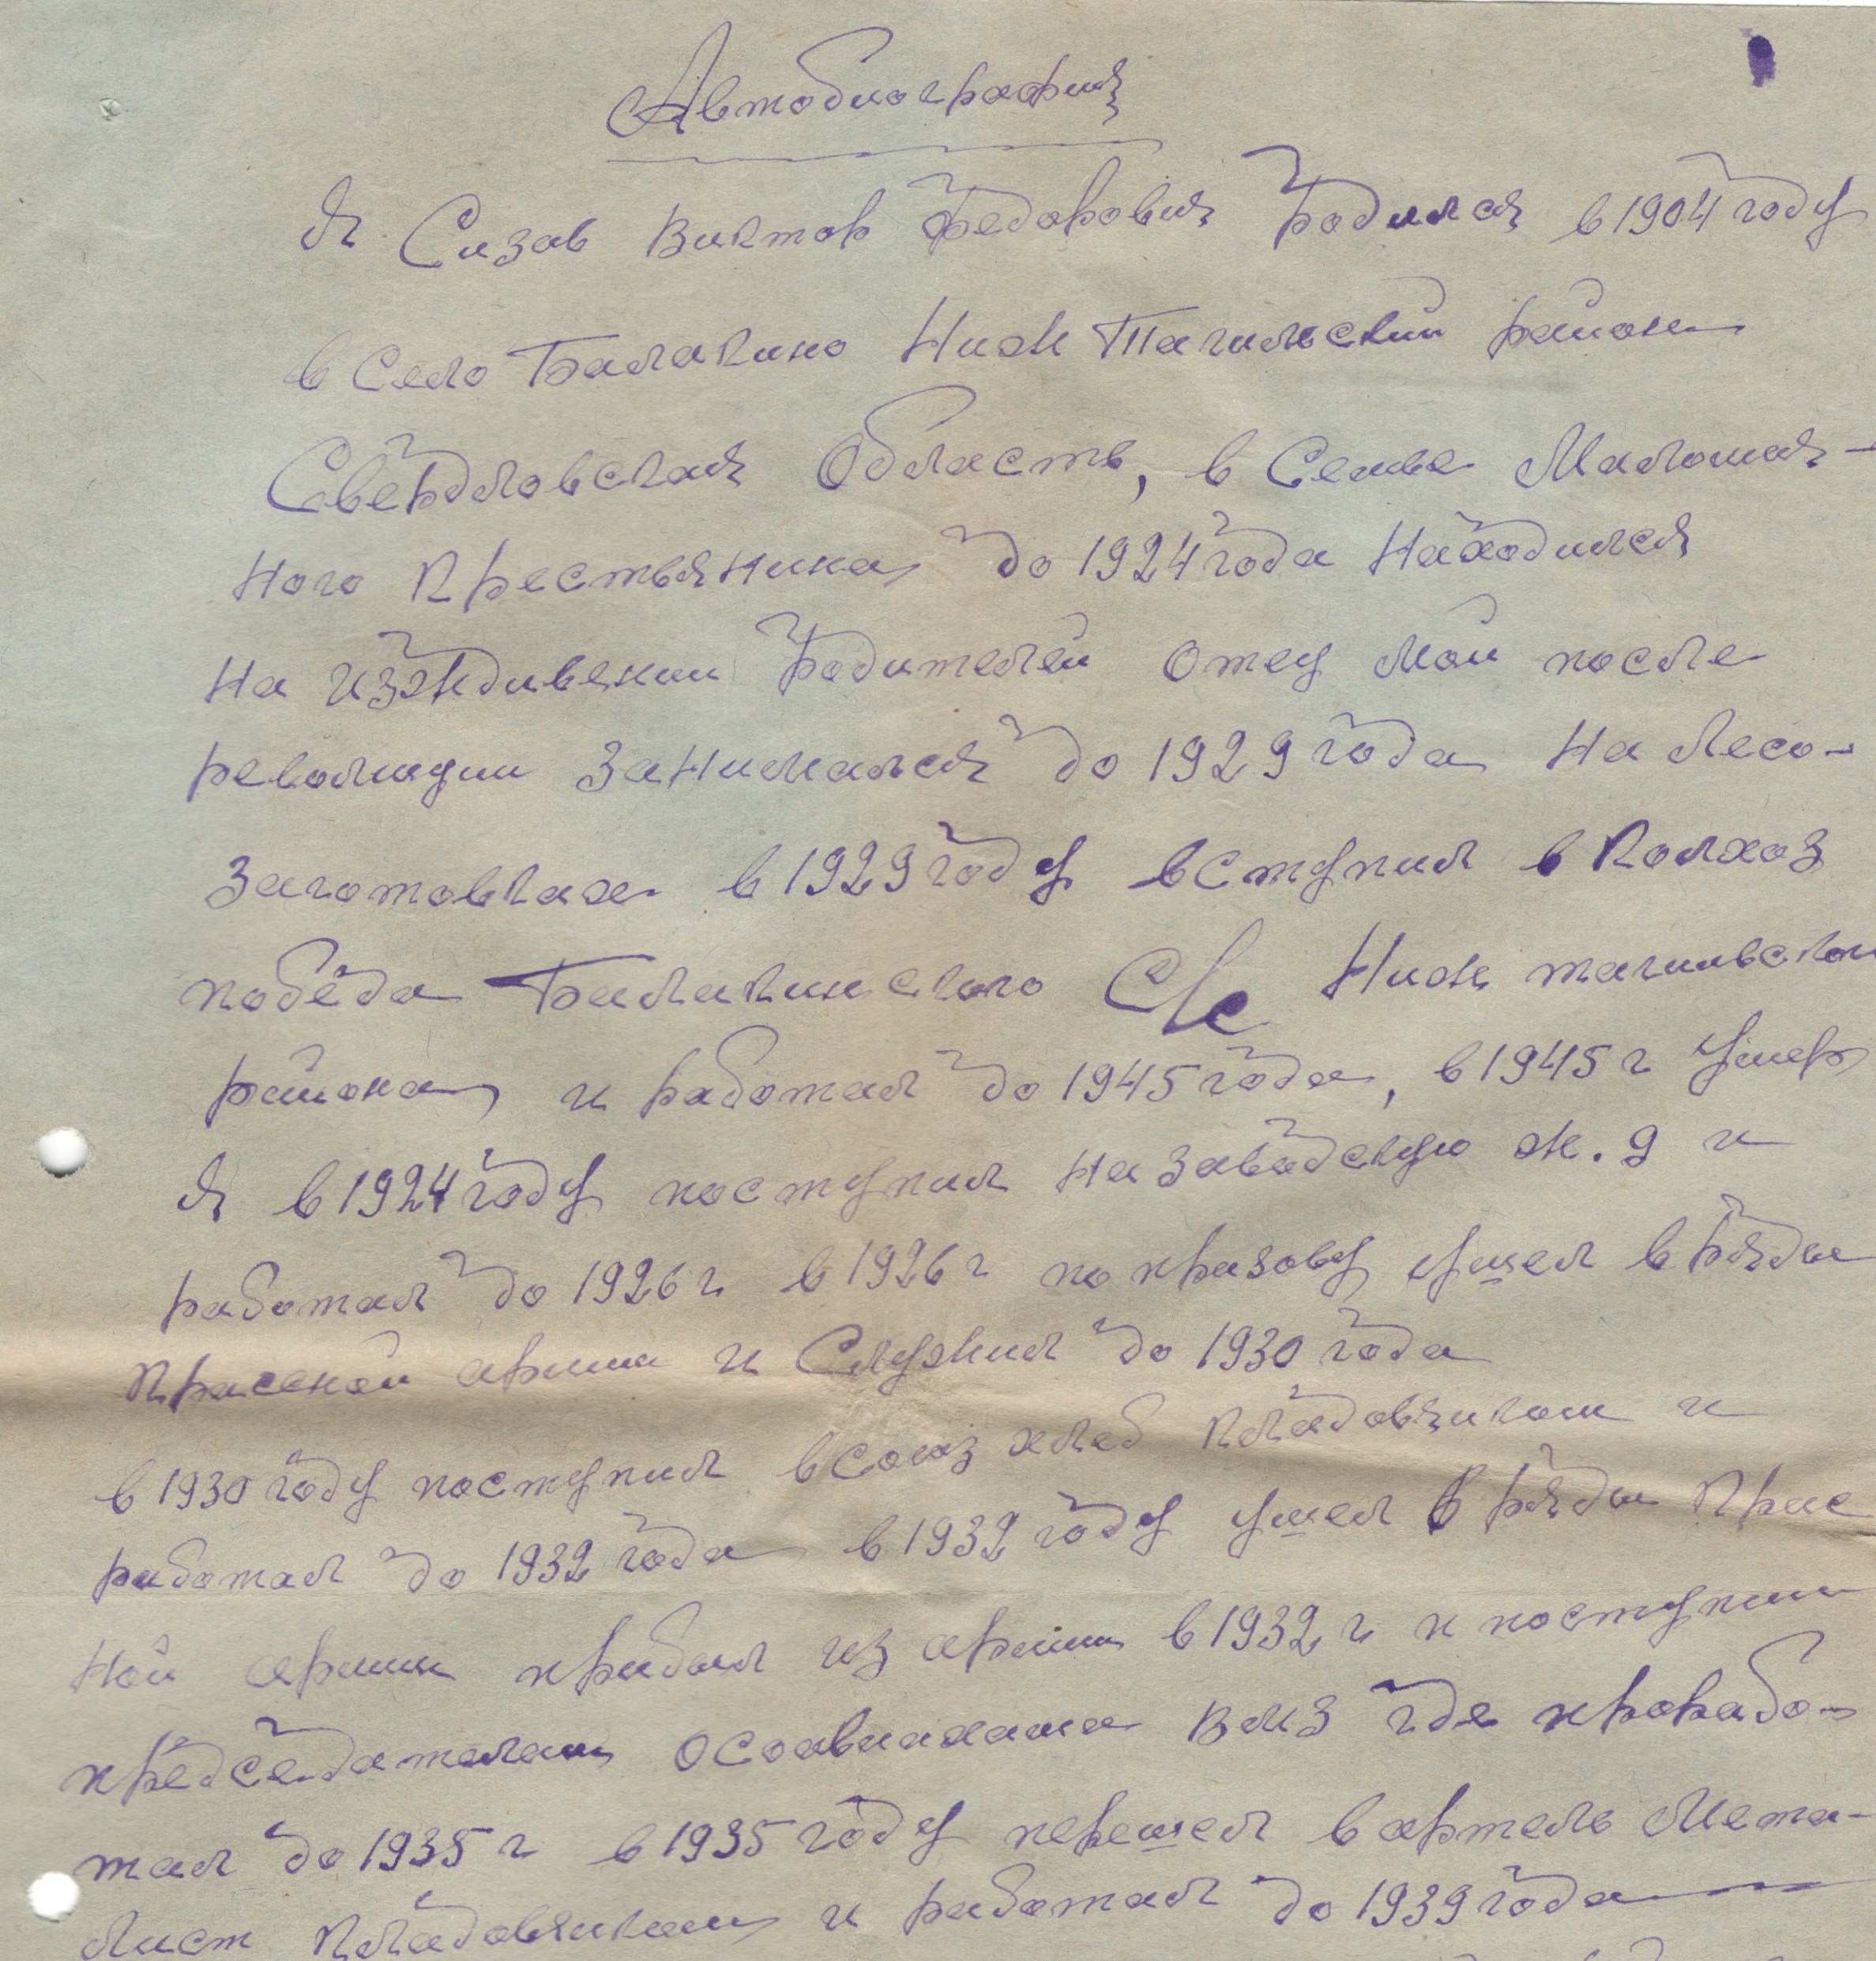 Автобиография
Я Сизов Виктор Федорович родился в 1904 году
в село Балакино Ниж Тагильский района
Свердловская Область, в Семье Маломощ-
ного крестьянина до 1924 года находился
на иждивении родителей Отец мой после
революции занимался до 1929 года на лесо-
заготовках в 1929 году вступил в колхоз
победа Балакинского С/с Ниж тагильском
района и работал до 1945 года, в 1945 г умер
Я в 1924 году поступил на завадскую ж.д и
работал до 1926 г. в 1926 г по призову ушел в ряды
красной армии и Служил до 1930 года
в 1930 году поступил в союз хлеб кладовщиком и
работал до 1932 года в 1932 году ушел в ряды крас
ной армии прибыл из армии в 1932 г и поступил
председателем осоавиахима ВМЗ где прорабо-
тал до 1935 г в 1935 году перешел в артель Мета-
лист кладовщиком и работал до 1939 года